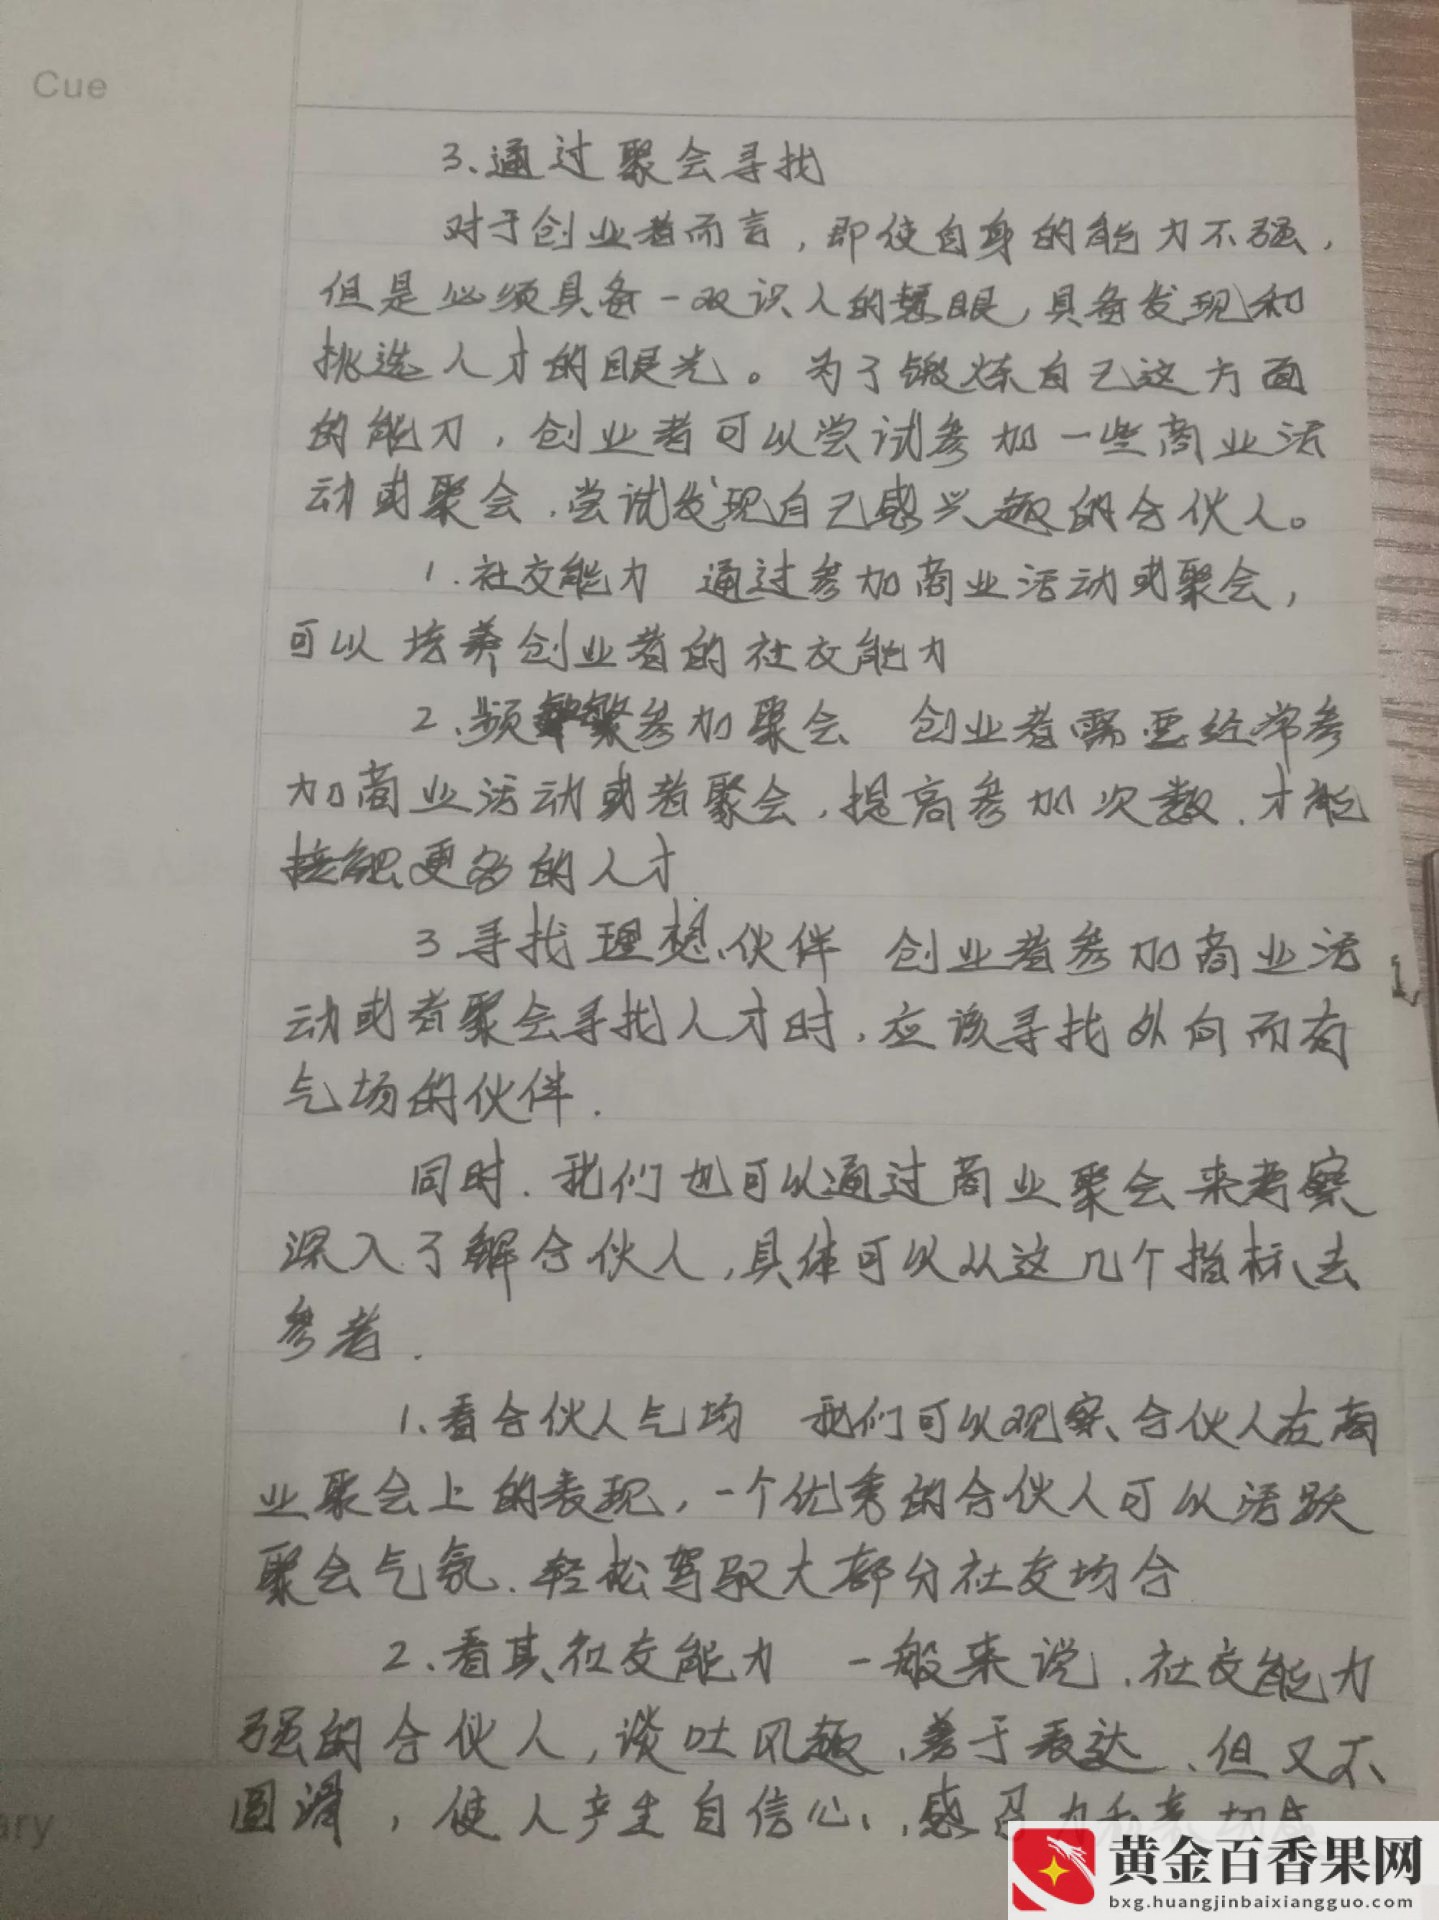 Cue
3、通过聚会寻找
对于创业者而言，即使自身的能力不强，
但是必须具备一双识人的慧眼，具备发现和
挑选人才的眼光。为了锻炼自己这方面
的能力，创业者可以尝试参加一些商业活
动或聚会，尝试发现自己感兴趣的合伙人。
1.社交能力 通过参加商业活动或聚会，
可以培养创业者的社交能力
2.频繁参加聚会 创业者需要经常参
加商业活动或者聚会，提高参加次数，才能
接触更多的人才
3寻找理想伙伴 创业者参加商业活
动或者聚会寻找人才时，应该寻找外向而有
气场的伙伴.
同时.我们也可以通过商业聚会来考察
深入了解合伙人，具体可以从这几个指标去
参考.
1、看合伙人气场 我们可以观察合伙人在商
业聚会上的表现，一个优秀的合伙人可以活跃
聚会气氛、轻松驾驭大部分社交场合
2、看其社交能力 一般来说，社交能力
强的合伙人，谈吐风趣、善于表达、但又不
圆滑，使人产生自信心、感召力和亲切感
ary
黄金百香果网
bxg.huangjinbaixiangguo.com